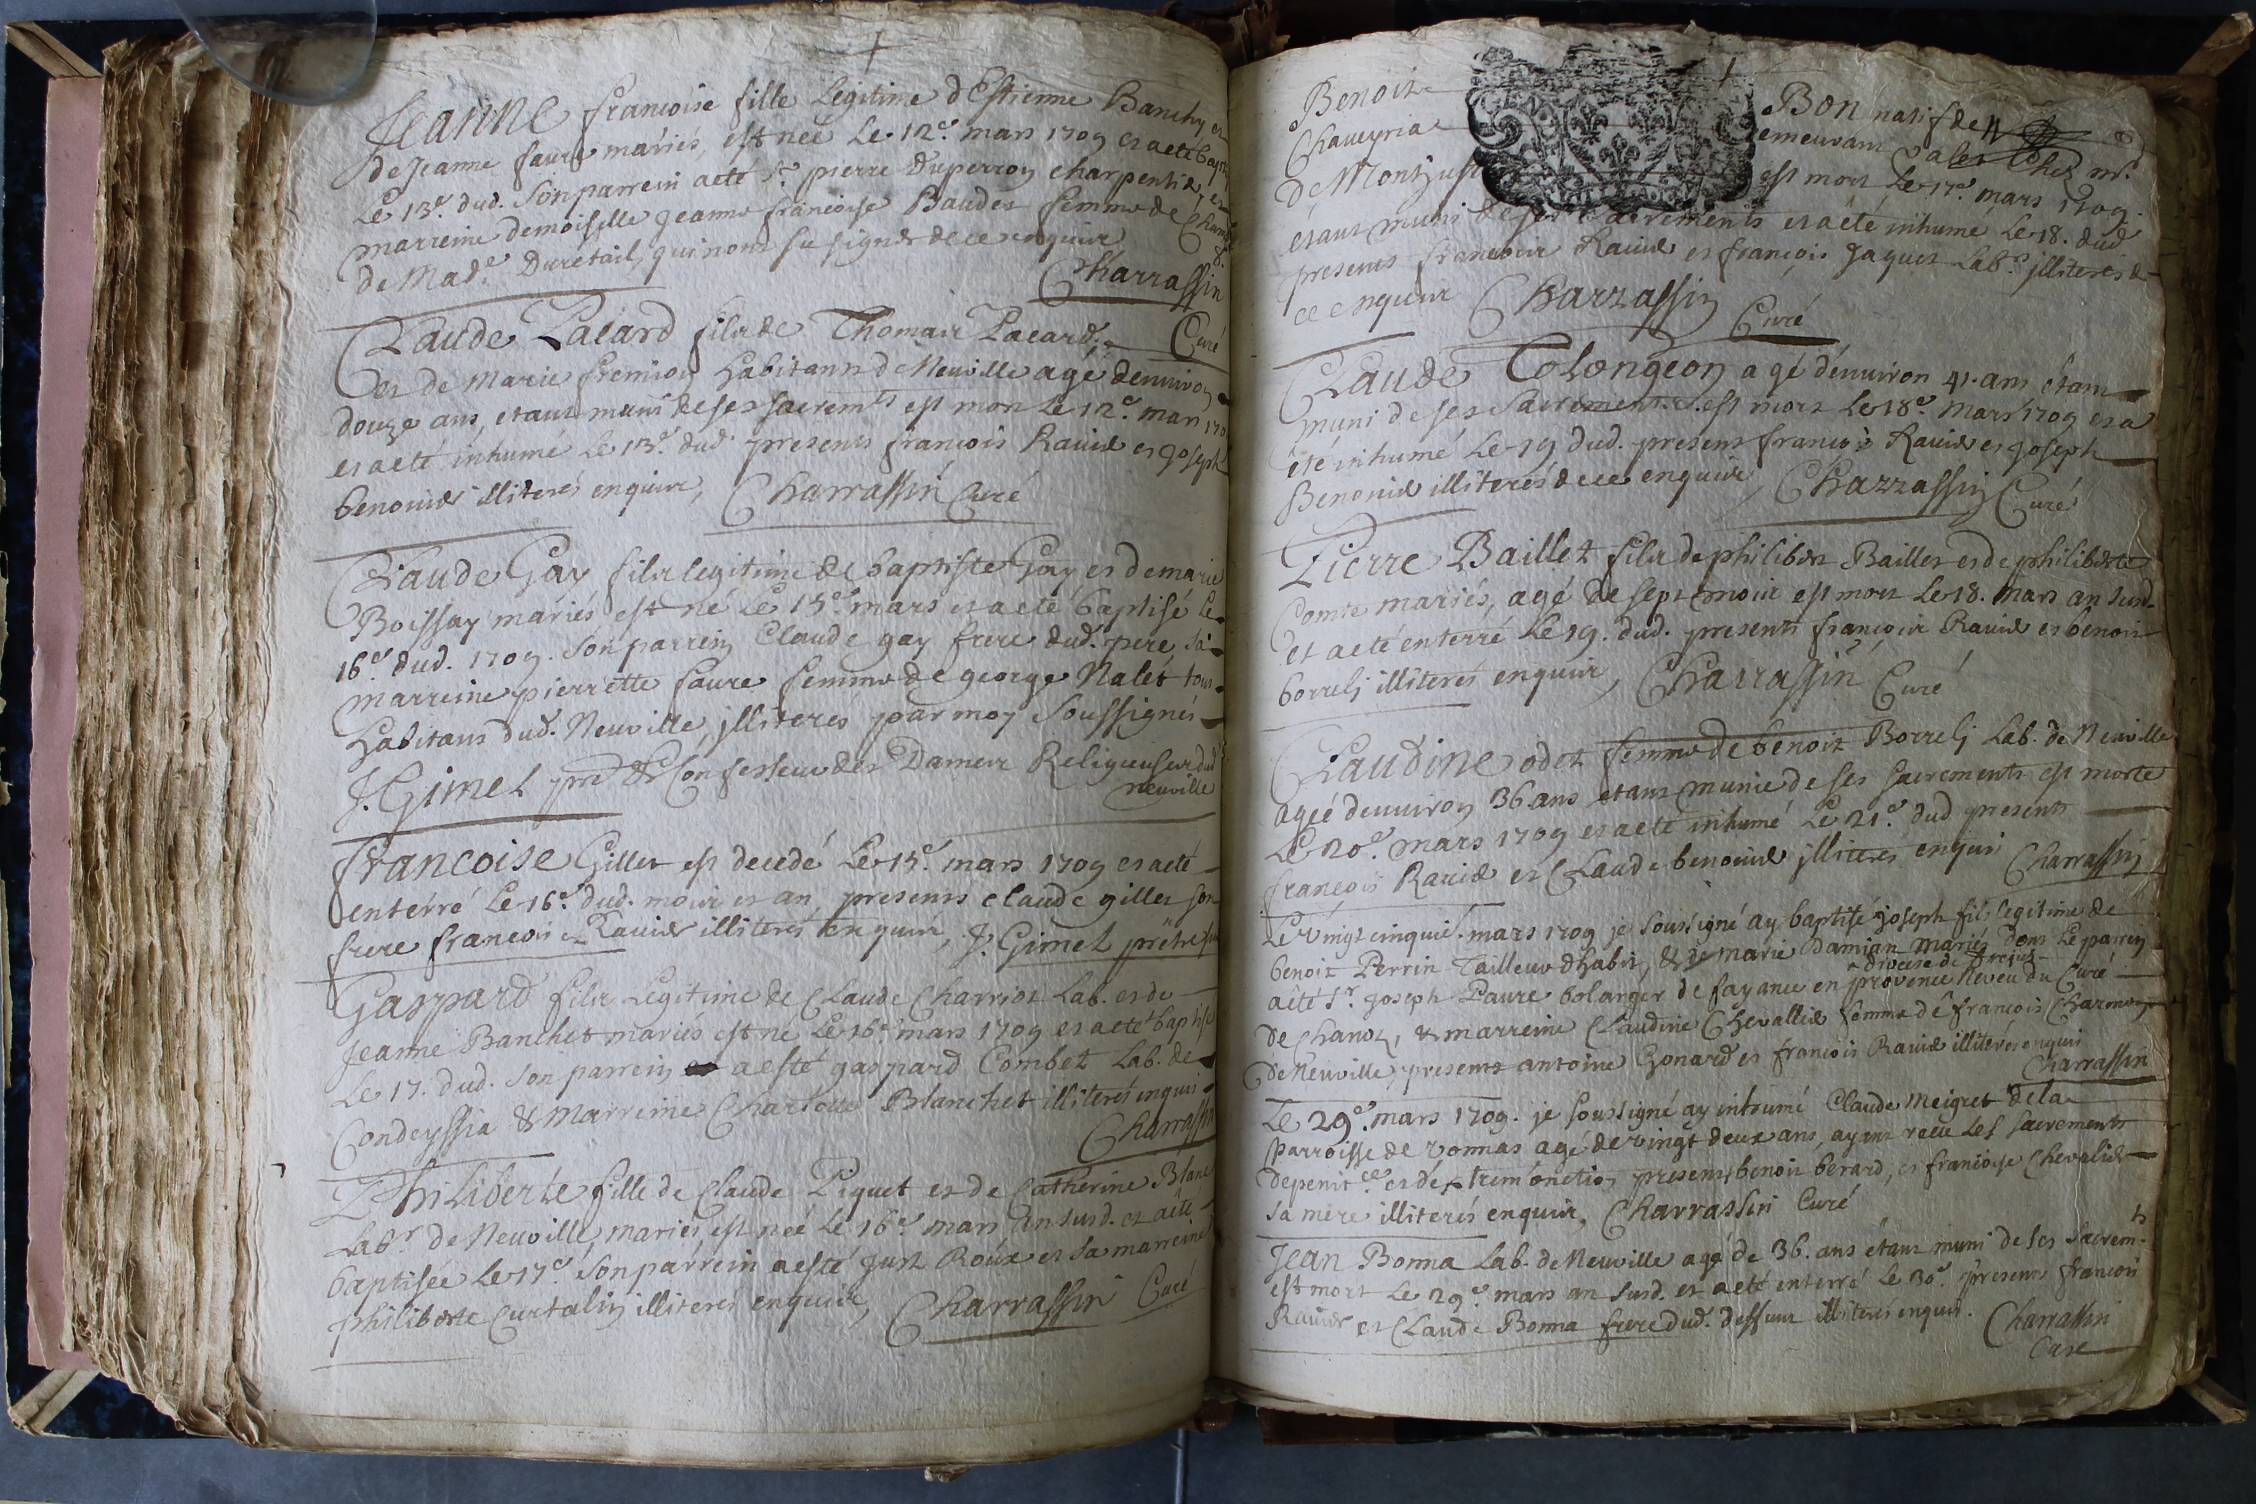 Jeanne francoise fille Legitime d'Estienne Banchy et
de Jeanne faure mariés, est née Le 12e. mars 1709 et a eté bapt
Le 13e. dud. Son parrein a eté Sr. pierre Duperroy charpentier, et
marreine demoiselle Jeanne francoise Baudet femme de
de Made. Duretail, qui n'ont su signer de ce enquis
Charrassin
Curé
Claude Pacard fils de Thomas Pacard
et de Marie fremion habitans de Neuville agé d'environ
douze ans, etant muni de ses sacremts est mort Le 12e. mars 170
et a eté inhumé Le 13e. dud. presents francois Ravier et Joseph
benouier illiterés enquis, Charrassin Curé
Claude Gay fils legitime de baptiste Gay et de marie
Boissay mariés est né Le 15e. mars et a eté baptisé Le
16e. dud. 1709. Son parrein Claude gay frere dud. pere, sa
marreine pierrette faure femme de george Nalet tous
habitans dud. Neuville, illiteres par moy Soussignés
J. Gimel pre & Confesseur des Dames Religieuses dud
neuville
francoise Gillet est decedé Le 15e. mars 1709 et a eté
enterré Le 16e. dud. mois et an, presents claude gillet son
frere francois Ravier illiterés enquis, J. Gimel prêtre
Gaspard fils Legitime de Claude Charriot Lab. et de
Jeanne Banchet mariés est né Le 16e. mars 1709 et a eté baptisé
Le 17. dud. son parrein a esté gaspard Combet Lab. de
Condeyssia & Marreine Charlotte Blanchet illiterés enquis
Charrassin
Philiberte fille de Claude Piquet et de Catherine Blanc
Labr. de Neuville, mariés est née Le 16e. mars an susd. et a été
baptisée Le 17e. Son parrein a esté Just Roux et sa marreine
philiberte Curtalin illiteres enquis, Charrassin Curé
Benoit Bon natif de
Chaveyria demeurant chez mr.
de Montjust est mort Le 17e. mars 1709.
étant muni de ses Sacrements et a été inhumé Le 18. dud
presents francois Ravier et francois Jaquet Labr. illiterés de
ce enquis Charrassin Curé
Claude Tolongeon agé d'environ 41. ans étant
muni de ses Sacrements. est mort Le 18e. mars 1709 et a
été inhumé Le 19 dud. present francois Ravier et Joseph
Benouier illiterés de ce enquis, Charrassin Curé
Pierre Baillet fils de philibert Baillet et de philiberte
Comte mariés, agé de sept mois est mort Le 18. mars an susd.
et a eté enterré Le 19. dud. presents francois Ravier et benoit
borrelj illiterés enquis, Charrassin Curé
Claudine odet femme de benoit Borrelj Lab. de Neuville
agée d'environ 36. ans etant munie de ses sacrements est morte
Le 20e. mars 1709 et a eté inhumé Le 21e. dud presents
françois Ravier et Claude benouier illiterés enquis Charrassin
Le vingt cinquié. mars 1709 je soussigné ay baptisé joseph fils legitime de
benoit Perrin Tailleur d'habit, & de marie Damian mariés dont Le parrein
a été Sr. joseph Paure bolanger de fayance en provence Neveu du Curé
diocese de frejus
de Chanoz, & marreine Claudine Chevallier femme de françois
de Neuville, presents antoine Gonard et francois Ravier illiterés enquis
Charrassin
Le 29e. mars 1709. je soussigné ay inhumé Claude meigret de la
parroisse de vonnas agé de vingt deux ans, ayant receu Les sacrements
de penitce. et d'extremonction presents benoit berard, et francoise chevalier
sa mere illiterés enquis, Charrassin Curé
Jean Bonna Lab. de Neuville agé de 36. ans étant muni de ses sacrem.ts
est mort Le 29e. mars an susd. et a eté enterré Le 30e. presents francois
Ravier et Claude Bonna frere dud. deffunt illiterés enquis. Charrassin
Curé